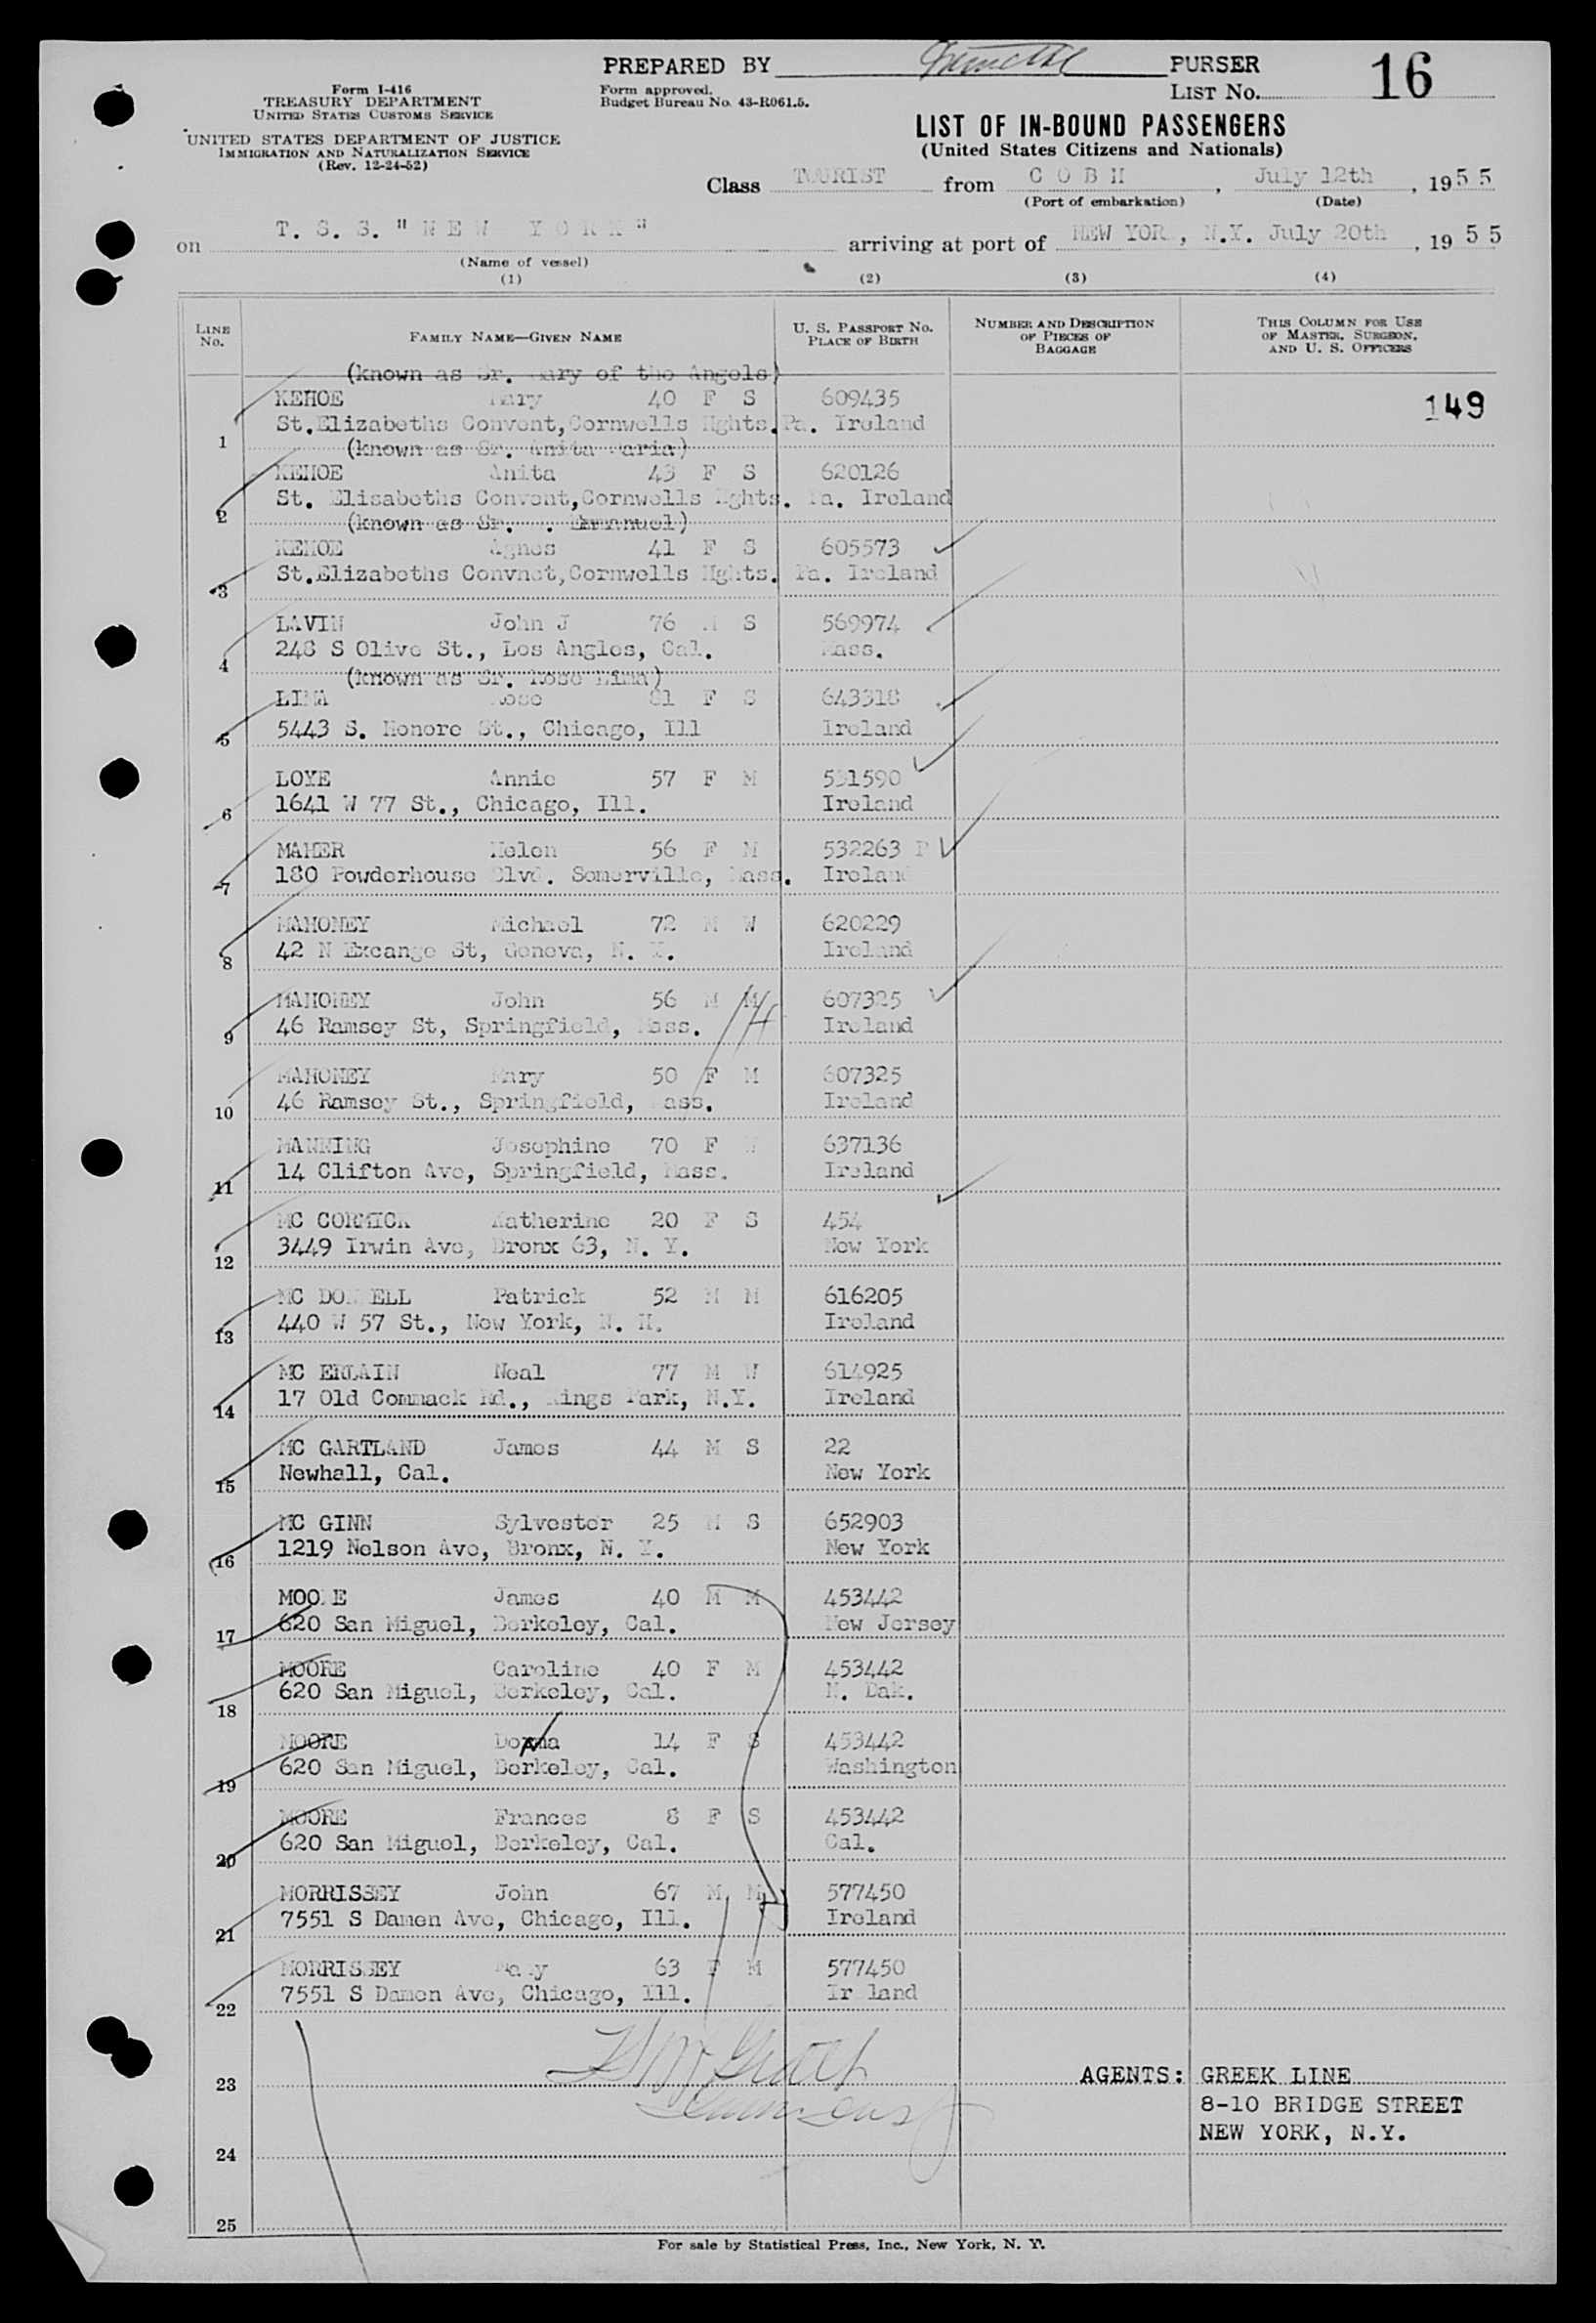 PREPARED BY PURSER
Form I-416
TREASURY DEPARTMENT
UNITED STATES CUSTOMS SERVICE
Form approved.
Budget Bureau No. 43-R061.5.
LIST No. 16
UNITED STATES DEPARTMENT OF JUSTICE
IMMIGRATION AND NATURALIZATION SERVICE
(Rev. 12-24-52)
LIST OF IN-BOUND PASSENGERS
(United States Citizens and Nationals)
Class TOURIST from C O B H , July 12th , 1955
(Port of embarkation) (Date)
on T. S. S. "N E W Y O R K" arriving at port of NEW YOR , N.Y. July 20th , 1955
(Name of vessel)
(1) (2) (3) (4)
LINE No. FAMILY NAME—GIVEN NAME U. S. PASSPORT No. PLACE OF BIRTH NUMBER AND DESCRIPTION OF PIECES OF BAGGAGE THIS COLUMN FOR USE OF MASTER, SURGEON, AND U. S. OFFICERS
(known as Sr. Mary of the Angels)
KEHOE Mary 40 F S 609435 149
1 St.Elizabeths Convent,Cornwells Hghts.Pa. Ireland
(known as Sr. Anita Maria)
KEHOE Anita 43 F S 620126
2 St. Elisabeths Convent,Cornwells Hghts. Pa. Ireland
(known as Sr. . Emmanuel)
KEHOE Agnes 41 F S 605573
3 St.Elizabeths Convnet,Cornwells Hghts. Pa. Ireland
LAVIN John J 76 M S 569974
4 248 S Olive St., Los Angles, Cal. Mass.
(known as Sr. Rose Lima)
LIMA Rose 81 F S 643318
5 5443 S. Honore St., Chicago, Ill Ireland
LOYE Annie 57 F M 531590
6 1641 W 77 St., Chicago, Ill. Ireland
MAHER Helen 56 F M 532263 P
7 180 Powderhouse Blvd. Somerville, Mass. Ireland
MAHONEY Michael 72 M W 620229
8 42 N Excange St, Geneva, N. Y. Ireland
MAHONEY John 56 M M 607325
9 46 Ramsey St, Springfield, Mass. Ireland
MAHONEY Mary 50 F M 607325
10 46 Ramsey St., Springfield, Mass. Ireland
MANNING Josephine 70 F W 637136
11 14 Clifton Ave, Springfield, Mass. Ireland
MC CORMICK Katherine 20 F S 454
12 3449 Irwin Ave, Bronx 63, N. Y. New York
MC DONNELL Patrick 52 M M 616205
13 440 W 57 St., New York, N. H. Ireland
MC ERLAIN Neal 77 M W 614925
14 17 Old Commack Rd., Kings Park, N.Y. Ireland
MC GARTLAND James 44 M S 22
15 Newhall, Cal. New York
MC GINN Sylvester 25 M S 652903
16 1219 Nelson Ave, Bronx, N. Y. New York
MOORE James 40 M M 453442
17 620 San Miguel, Berkeley, Cal. New Jersey
MOORE Caroline 40 F M 453442
18 620 San Miguel, Berkeley, Cal. N. Dak.
MOORE Donna 14 F S 453442
19 620 San Miguel, Berkeley, Cal. Washington
MOORE Frances 8 F S 453442
20 620 San Miguel, Berkeley, Cal. Cal.
MORRISSEY John 67 M M 577450
21 7551 S Damen Ave, Chicago, Ill. Ireland
MORRISSEY Mary 63 F M 577450
22 7551 S Damen Ave, Chicago, Ill. Ir land
23 AGENTS: GREEK LINE
8-10 BRIDGE STREET
NEW YORK, N.Y.
24
25
For sale by Statistical Press, Inc., New York, N. Y.